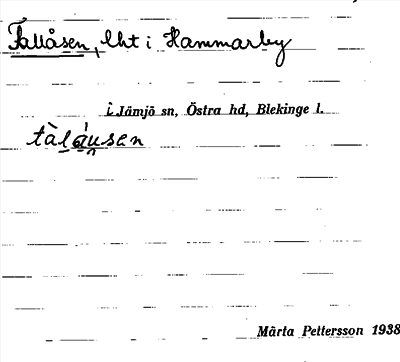 Tallåsen, lht i Hammarby
i Jämjö sn, Östra hd, Blekinge l.
Märta Pettersson 1938